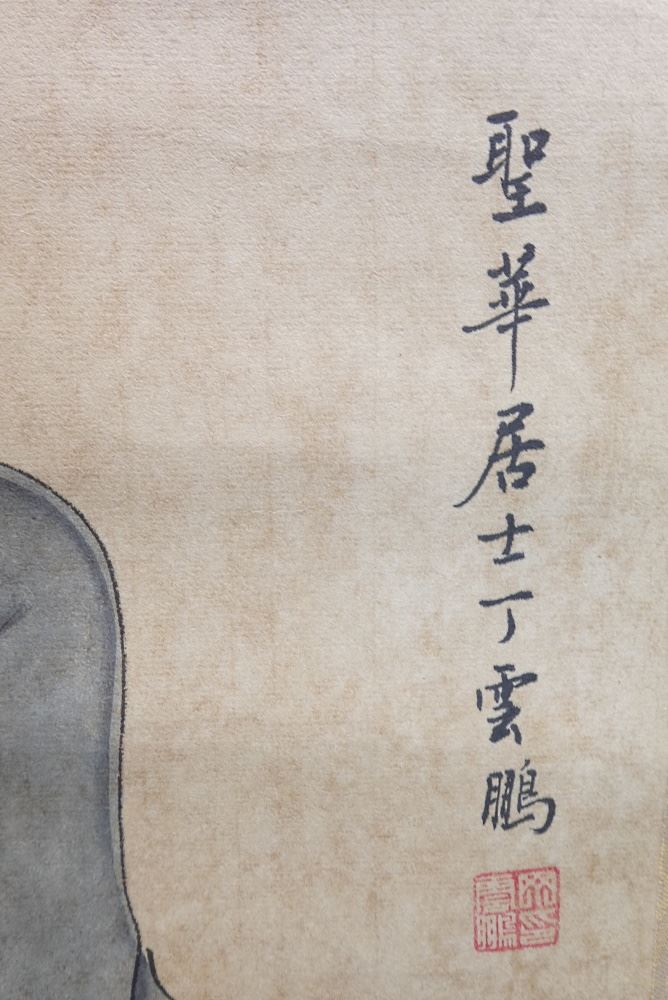 聖華居士丁雲鵬